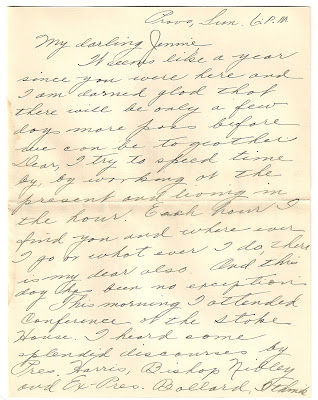 Provo, Sun. 6 P.M.
My darling Jennie
It seems like a year
since you were here and
I am darned glad that
there will be only a few
days more pass before
we can be to geather
Dear, I try to speed time
by, by working at the
present and living in
the hour. Each hour I
find you and where ever
I go or what ever I do, there
is my dear also. And this
day has been no exception
This morning I attended
Conference at the Stake
House. I heard some
splendid discourses by
Pres. Harris, Bishop Nibley
and Ex-Pres. Ballard, I think